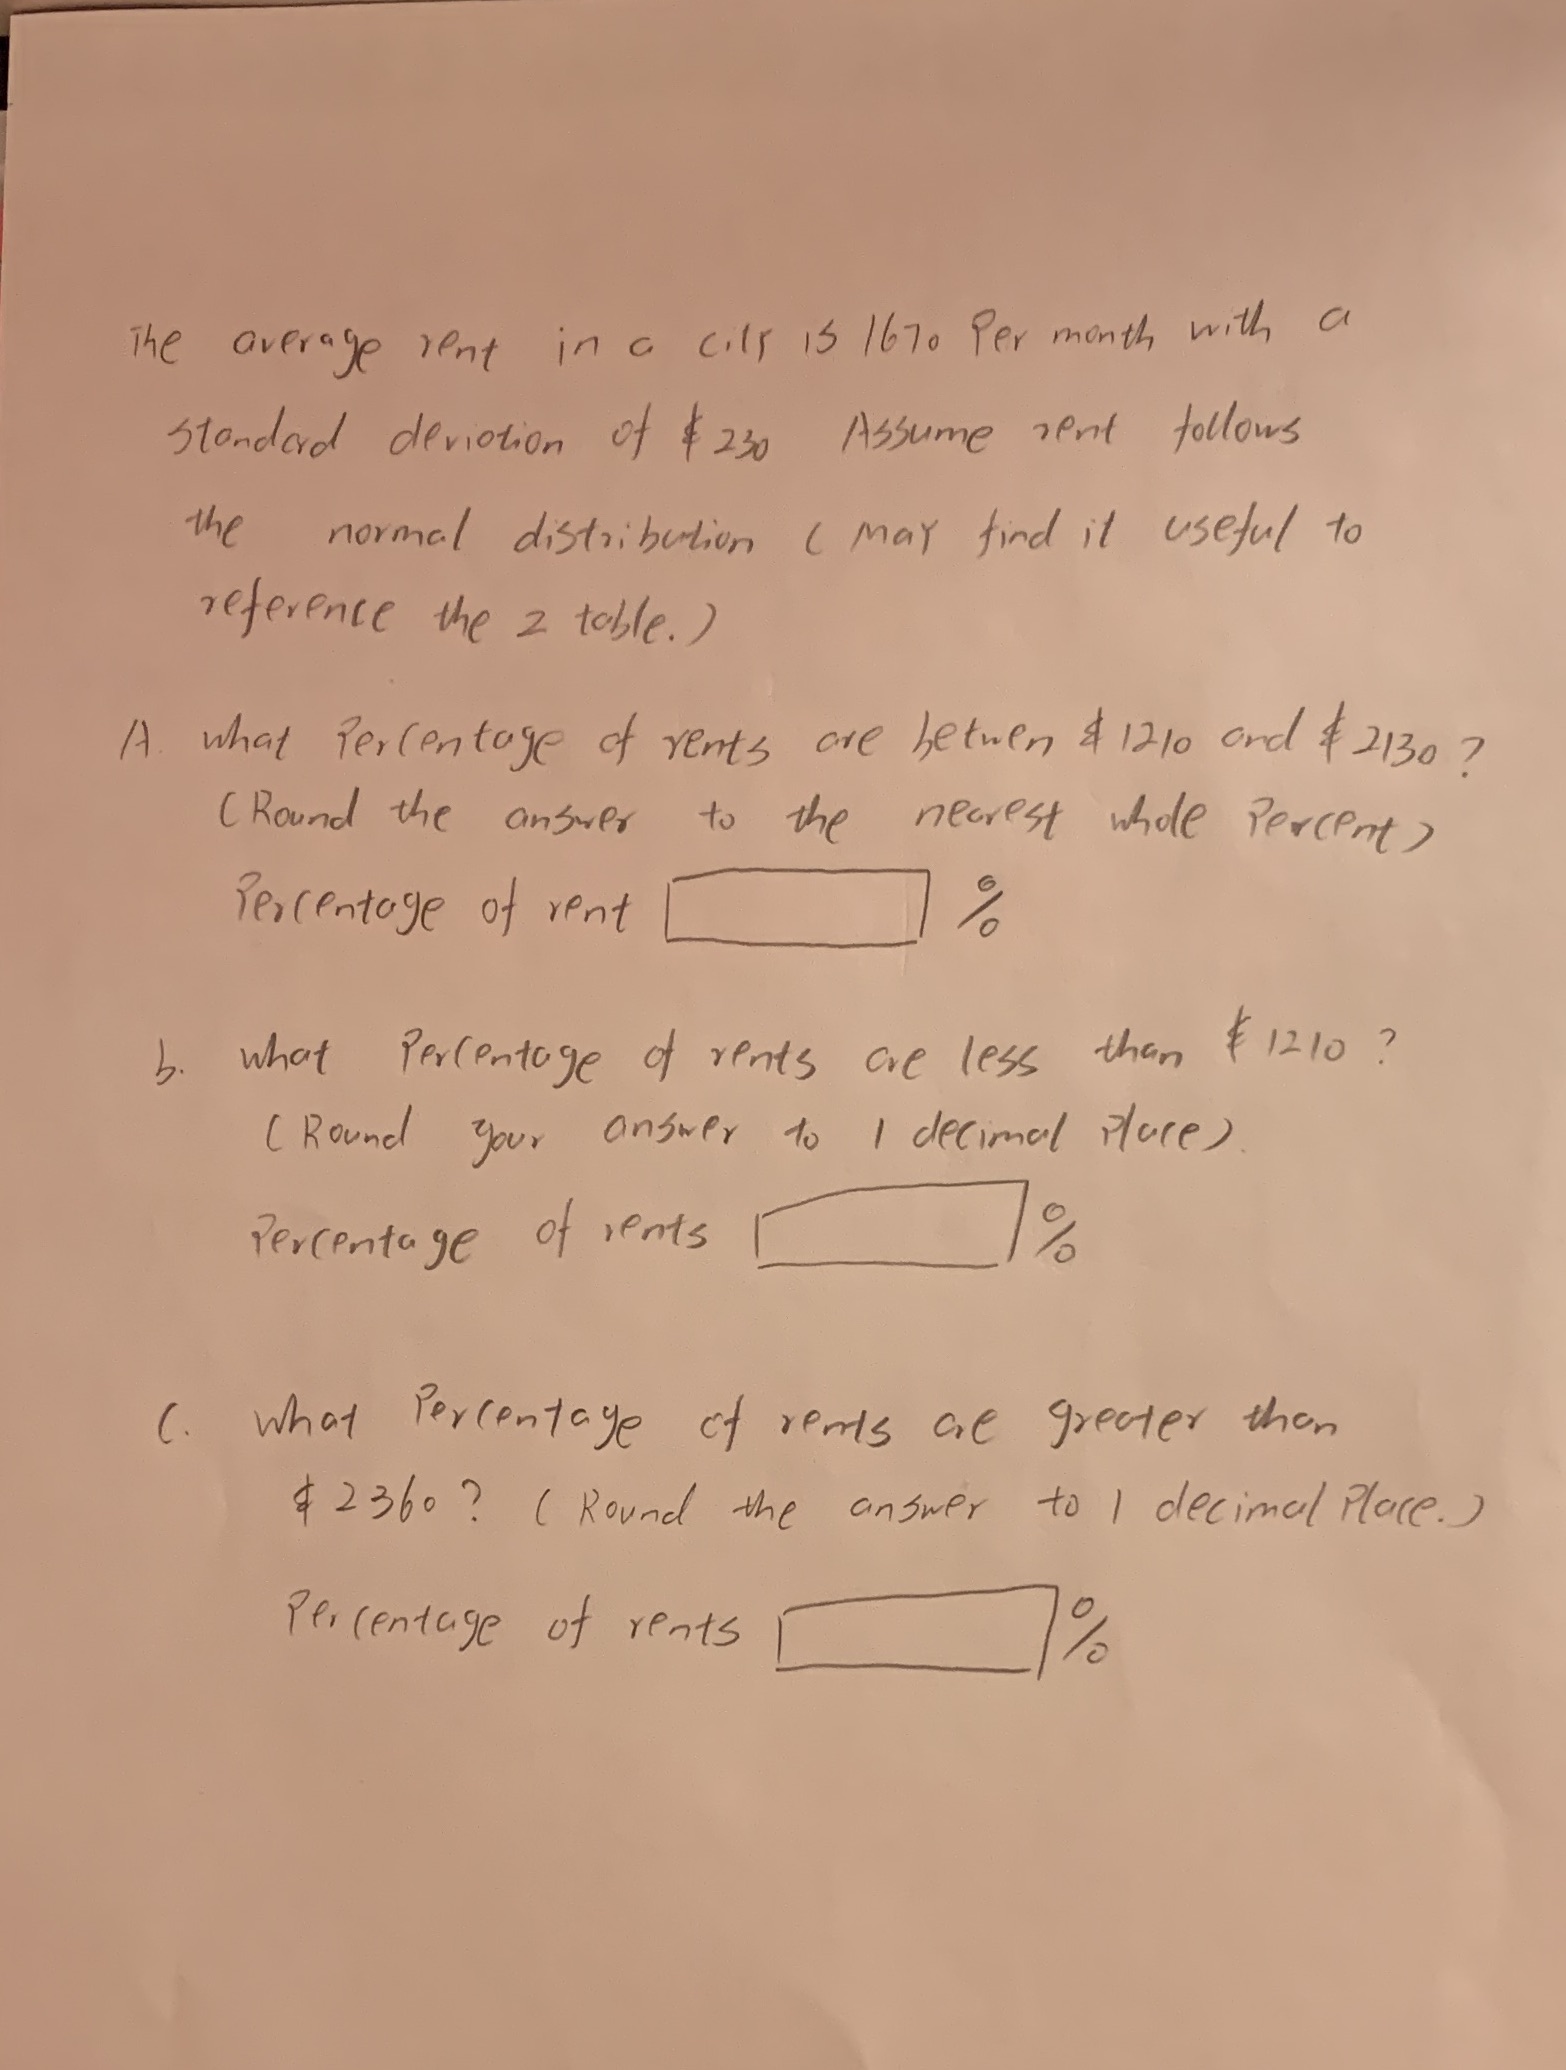 The average rent in a city is 1670 Per month with a
standard deviation of $230 Assume rent follows
the normal distribution ( may find it useful to
reference the z table.)
A. what Percentage of rents are betwen $1210 and $2130?
(Round the answer to the nearest whole Percent)
Percentage of rent %
b. what Percentage of rents are less than $1210?
(Round your answer to 1 decimal Place).
Percentage of rents %
C. what Percentage of rents are greater than
$2360? (Round the answer to 1 decimal Place.)
Percentage of rents %